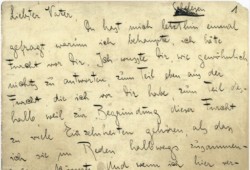 1
Liebster Vater,
Du hast mich letzthin einmal
gefragt warum ich behaupte, ich hätte
Furcht vor Dir. Ich wusste Dir, wie gewöhnlich
nichts zu antworten zum Teil eben aus der
Furcht die ich vor Dir habe zum Teil des-
halb weil zur Begründung dieser Furcht
zu viele Einzelheiten gehören als dass
ich sie im Reden halbwegs zusammen-
Und wenn ich hier ver-